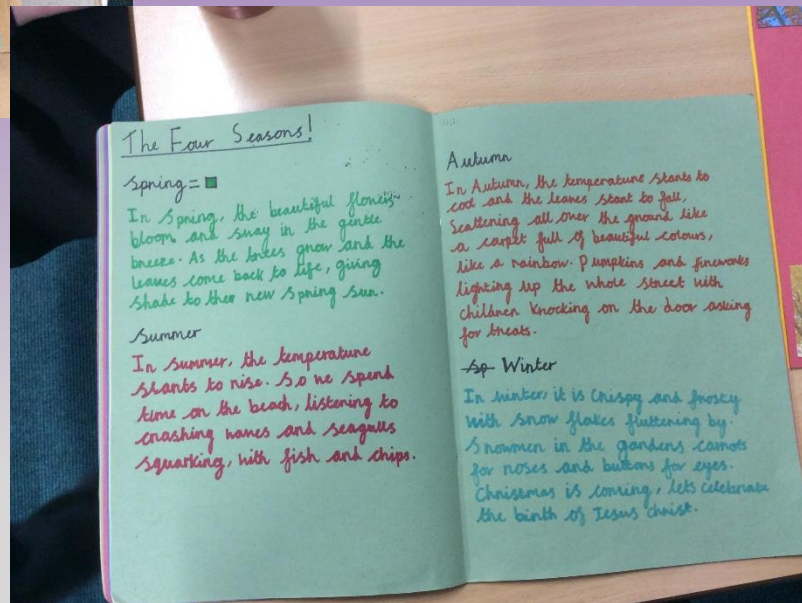 The Four Seasons!
Spring =
In Spring, the beautiful flowers
bloom and sway in the gentle
breeze. As the trees grow and the
leaves come back to life, giving
shade to ther new Spring sun.
Summer
In summer, the temperature
starts to rise. So we spend
time on the beach, listening to
crashing waves and seagulls
squarking, with fish and chips.
Autumn
In Autumn, the temperature starts to
cool and the leaves start to fall,
Scattering all over the ground like
a carpet full of beautiful colours,
like a rainbow. Pumpkins and fireworks
lighting up the whole street with
children knocking on the door asking
for treats.
sp Winter
In winter it is Crispy and frosty
with snow flakes fluttering by.
Snowmen in the gardens carrots
for noses and buttons for eyes.
Christmas is coming, lets celebrate
the birth of Jesus christ.